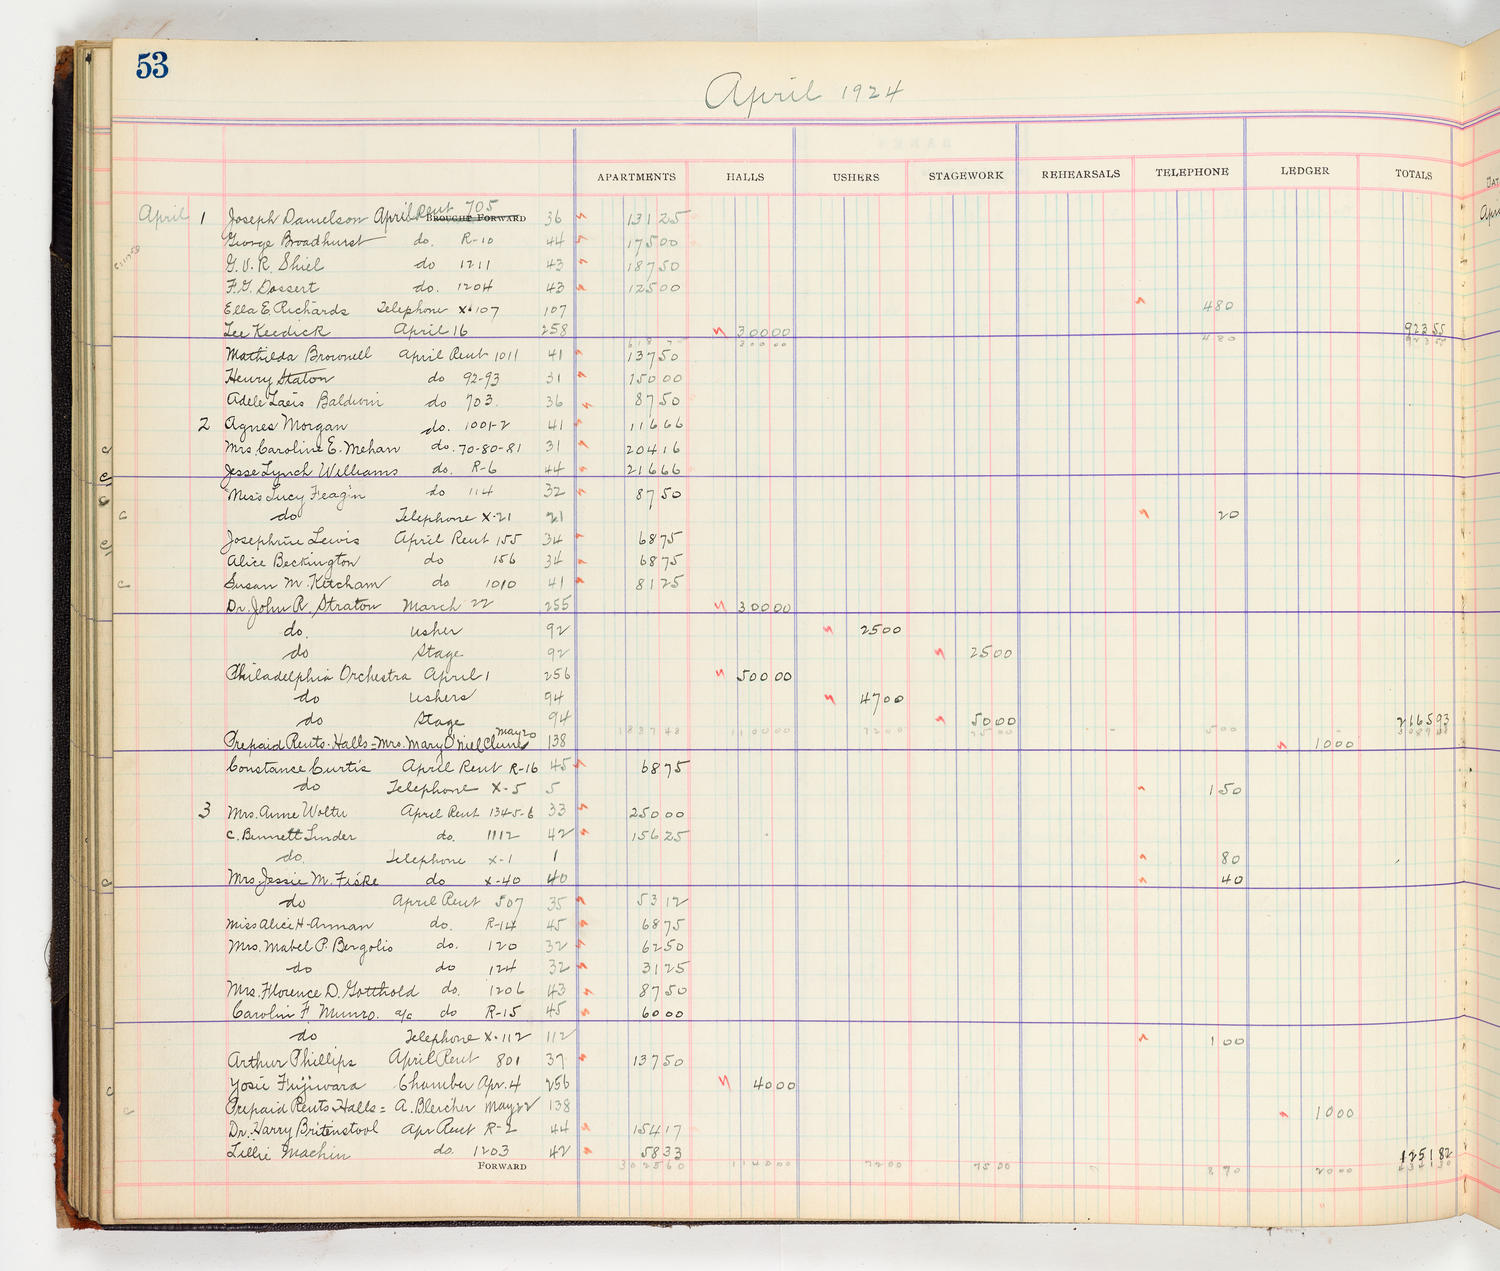 53
April 1924
APARTMENTS HALLS USHERS STAGEWORK REHEARSALS TELEPHONE LEDGER TOTALS
April 1 Joseph Danielson April Rent 705 BROUGHT FORWARD 36 131 25
George Broadhurst do. R-10 44 175 00
G. V. R. Shiel do 1211 43 187 50
F. G. Dossert do. 1204 43 125 00
Ella E Richards Telephone X-107 107 4 80
Lee Keedick April 16 258 300 00 923 55
618 75 300 00 4 80 923 55
Mathilda Brownell April Rent 1011 41 137 50
Henry Staton do 92-93 31 150 00
Adele Laeis Baldwin do 703. 36 87 50
2 Agnes Morgan do. 1001-2 41 116 66
Mrs. Caroline E. Mehan do. 70-80-81 31 204 16
Jesse Lynch Williams do. R-6 44 216 66
Miss Lucy Feagin do 114 32 87 50
do Telephone X-21 21 20
Josephine Lewis April Rent 155 34 68 75
Alice Beckington do 156 34 68 75
Susan M. Ketcham do 1010 41 81 25
Dr. John R. Straton March 22 255 300 00
do. usher 92 25 00
do Stage 92 25 00
Philadelphia Orchestra April 1 256 500 00
do ushers 94 47 00
do Stage 94 50 00 2165 93
1837 48 1100 00 72 00 75 00 5 00 3089 48
Prepaid Rents-Halls = Mrs. Mary O'Niel May 20 138 10 00
Constance Curtis April Rent R-16 45 68 75
do Telephone X-5 5 1 50
3 Mrs. Anne Wolter April Rent 134-5-6 33 250 00
C. Bennett Linder do. 1112 42 156 25
do. Telephone X-1 1 80
Mrs. Jessie M. Fiske do X-40 40 40
do April Rent 507 35 53 12
Miss Alice H. Arman do. R-14 45 68 75
Mrs. Mabel P. Bergolis do. 120 32 62 50
do do 124 32 31 25
Mrs. Florence D. Gotthold do. 1206 43 87 50
Carolin F. Munro. a/c do R-15 45 60 00
do Telephone X-112 112 1 00
Arthur Phillips April Rent 801 37 137 50
Yosie Fujiwara Chamber Apr. 4 256 40 00
Prepaid Rents-Halls = A. Bleicher May 22 138 10 00
Dr. Harry Britenstool Apr Rent R-2 44 154 17
Lillie Machin do. 1203 42 58 33 1251 82
FORWARD 3025 60 1140 00 72 00 75 00 8 70 20 00 4341 30